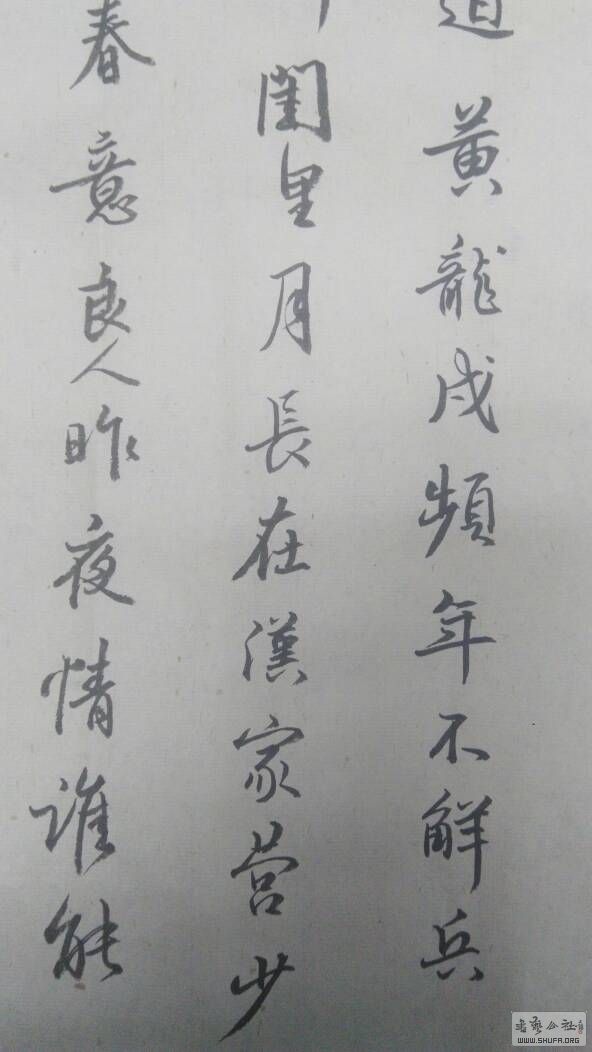 道黄龍戍頻年不解兵
閨里月長在漢家營少
春意良人昨夜情誰能
書藝公社
WWW.SHUFA.ORG